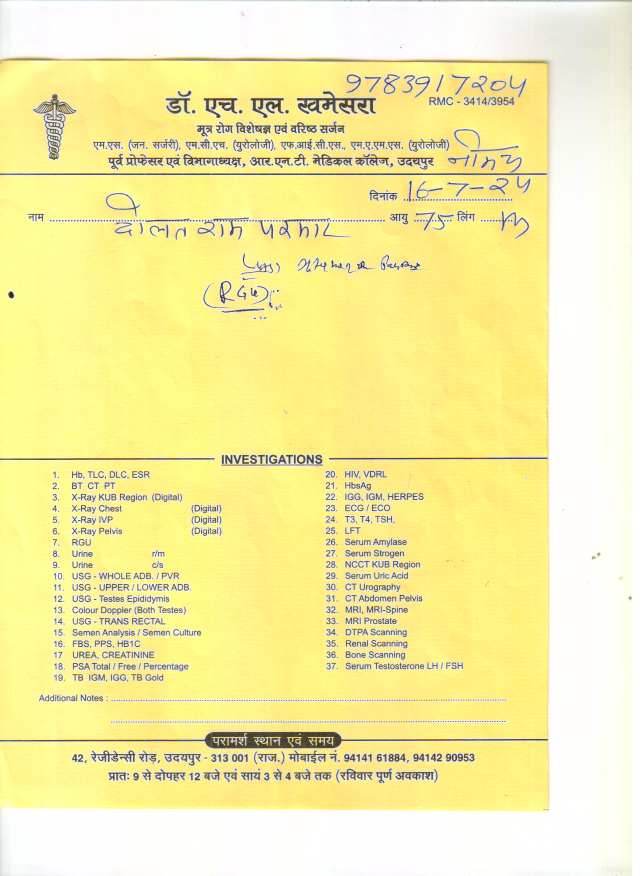 9783917204
डॉ. एच. एल. खमेसरा
RMC - 3414/3954
मूत्र रोग विशेषज्ञ एवं वरिष्ठ सर्जन
एम.एस. (जन. सर्जरी), एम.सी.एच. (युरोलोजी), एफ.आई.सी.एस., एम.ए.एम.एस. (युरोलोजी)
पूर्व प्रोफेसर एवं विभागाध्यक्ष, आर.एन.टी. मेडिकल कॉलेज, उदयपुर
दिनांक 16-7-24
नाम दौलत राम परमार आयु 75 लिंग M
(RGU)
INVESTIGATIONS
1. Hb, TLC, DLC, ESR
2. BT CT PT
3. X-Ray KUB Region (Digital)
4. X-Ray Chest (Digital)
5. X-Ray IVP (Digital)
6. X-Ray Pelvis (Digital)
7. RGU
8. Urine r/m
9. Urine c/s
10. USG - WHOLE ADB. / PVR
11. USG - UPPER / LOWER ADB.
12. USG - Testes Epididymis
13. Colour Doppler (Both Testes)
14. USG - TRANS RECTAL
15. Semen Analysis / Semen Culture
16. FBS, PPS, HB1C
17 UREA, CREATININE
18. PSA Total / Free / Percentage
19. TB IGM, IGG, TB Gold
20. HIV, VDRL
21. HbsAg
22. IGG, IGM, HERPES
23. ECG / ECO
24. T3, T4, TSH,
25. LFT
26. Serum Amylase
27. Serum Strogen
28. NCCT KUB Region
29. Serum Uric Acid
30. CT Urography
31. CT Abdomen Pelvis
32. MRI, MRI-Spine
33. MRI Prostate
34. DTPA Scanning
35. Renal Scanning
36. Bone Scanning
37. Serum Testosterone LH / FSH
Additional Notes :
परामर्श स्थान एवं समय
42, रेजीडेन्सी रोड़, उदयपुर - 313 001 (राज.) मोबाईल नं. 94141 61884, 94142 90953
प्रातः 9 से दोपहर 12 बजे एवं सायं 3 से 4 बजे तक (रविवार पूर्ण अवकाश)